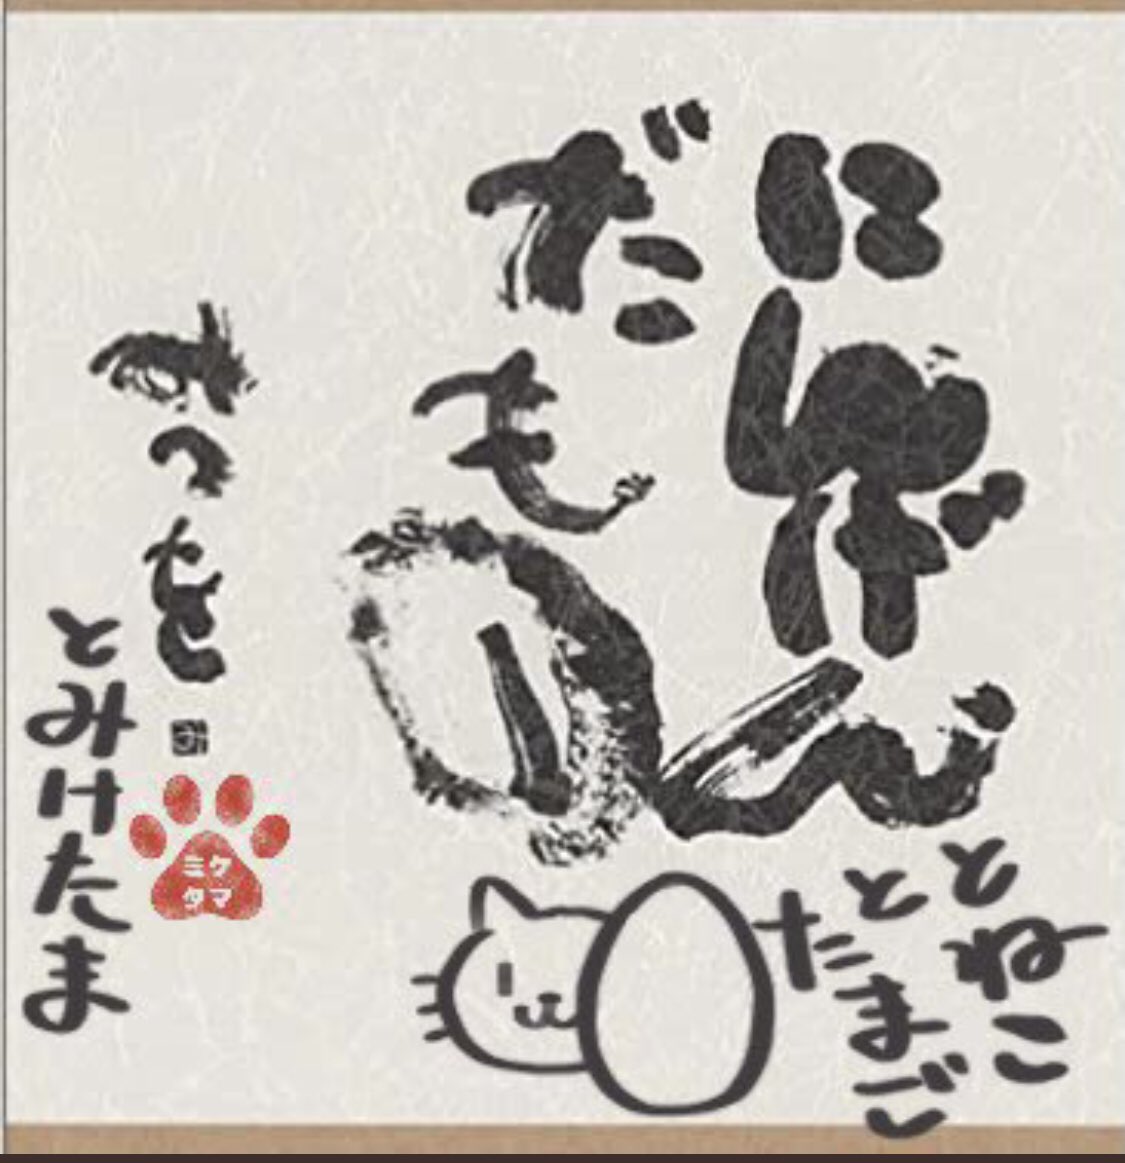 にんげん
だもの
とねこ
とたまご
みつを
とみけたま
ミケ
タマ